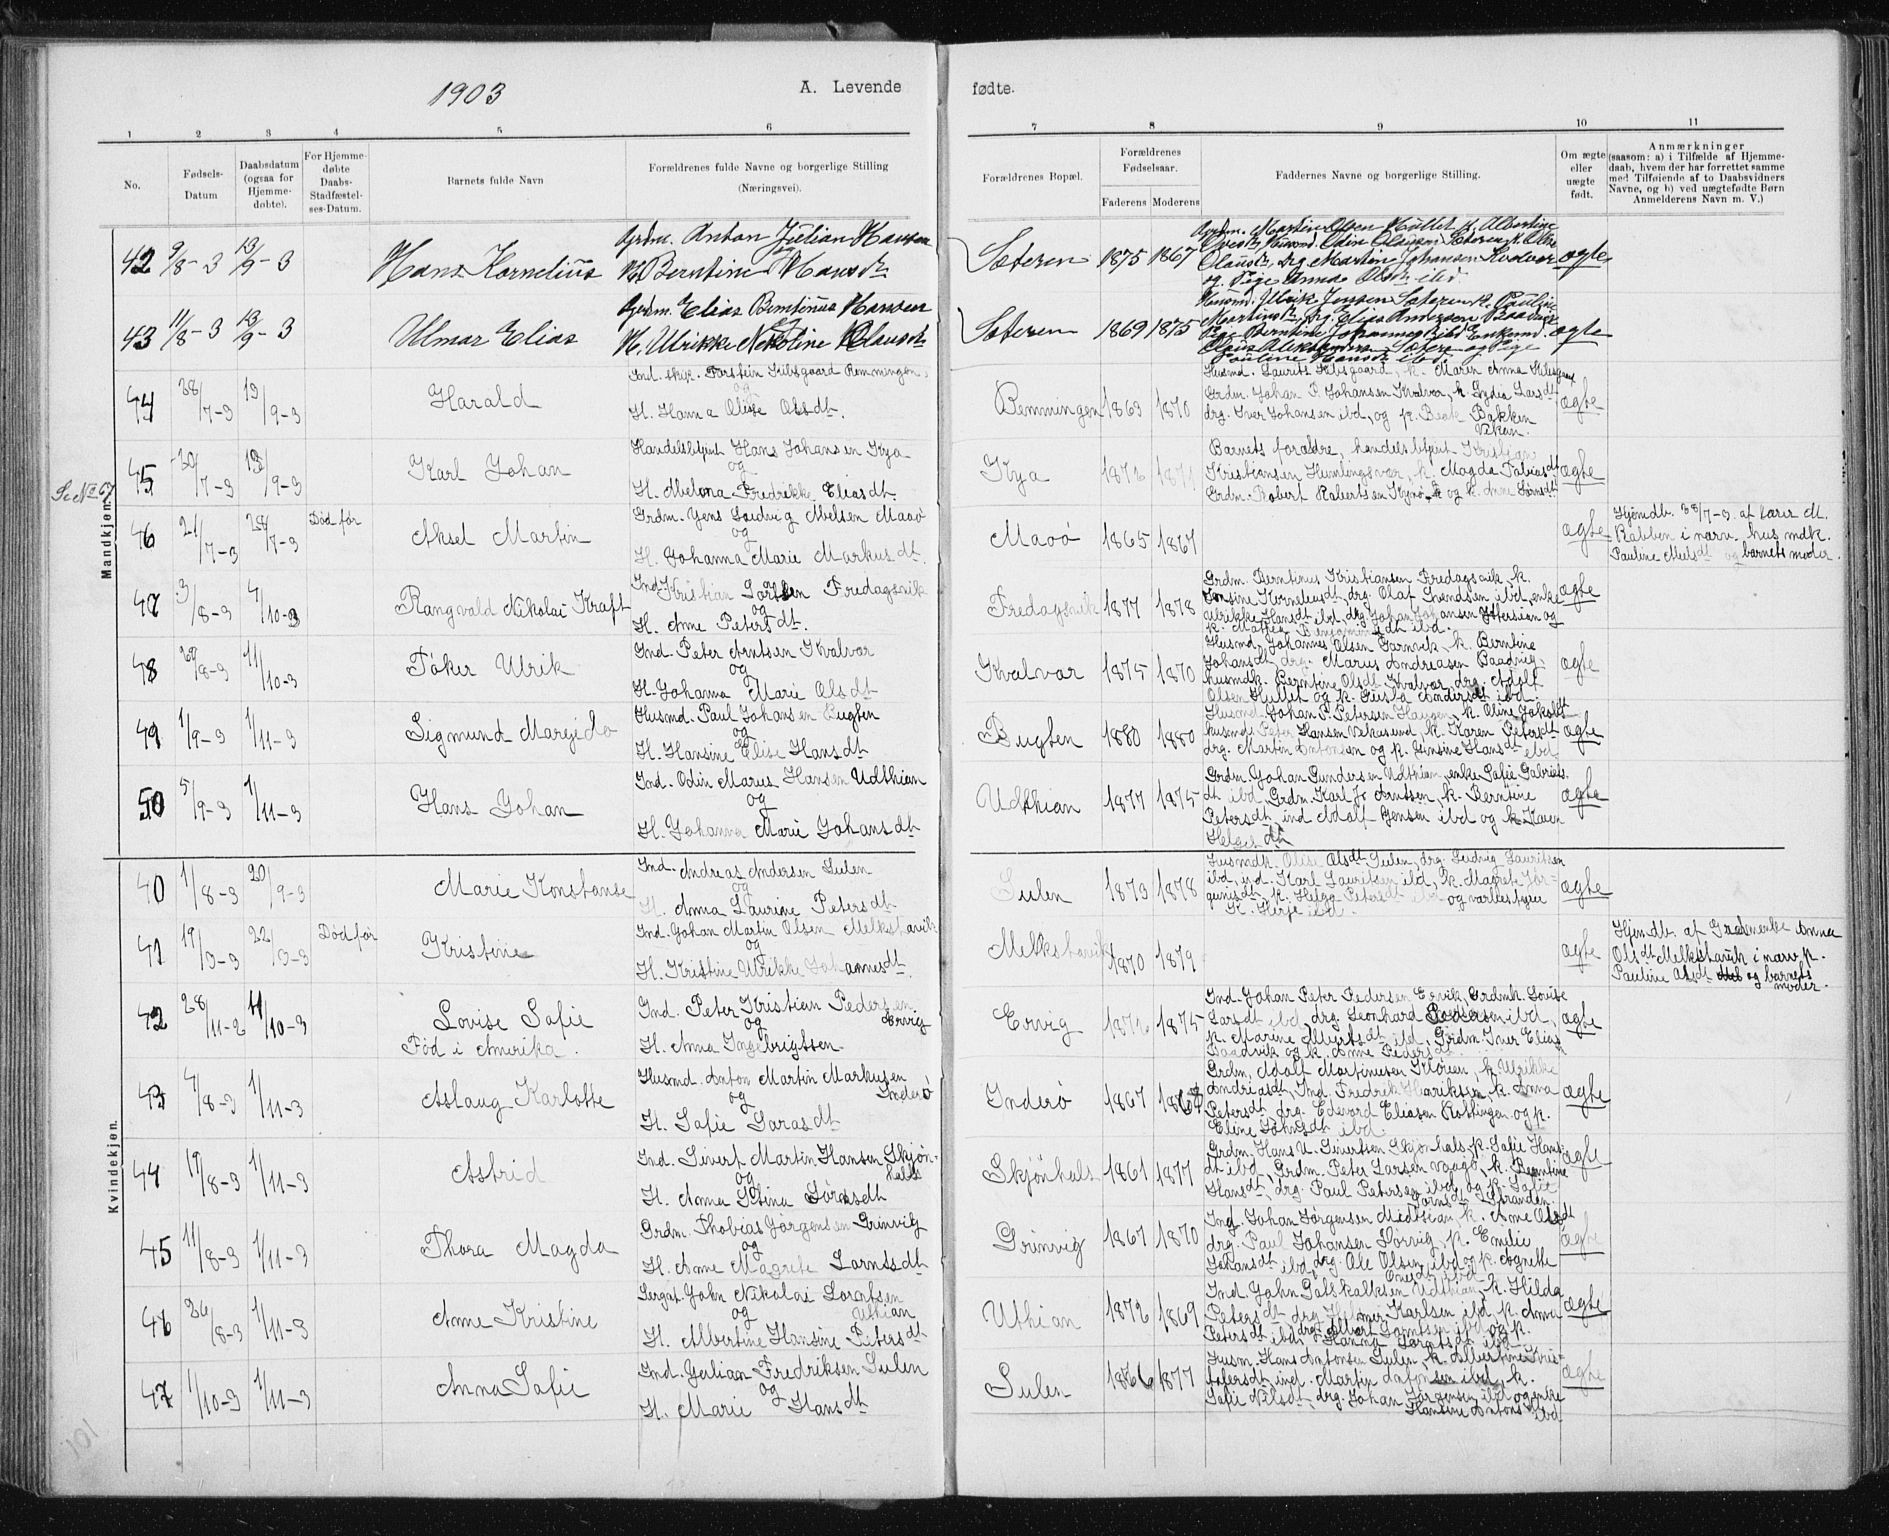 1903
A. Levende
fødte.
1 2 3 4 5 6 7 8 9 10 11
No.
Fødsels-Datum
Daabsdatum (ogsaa for Hjemme-døbte).
For Hjemme-døbte Daabs-Stadfæstel-ses-Datum.
Barnets fulde Navn
Forældrenes fulde Navne og borgerlige Stilling
(Næringsvei).
Forældrenes Bopæl.
Forældrenes Fødselsaar.
Faderens Moderens
Faddernes Navne og borgerlige Stilling.
Om ægte eller uægte født.
Anmærkninger
(saasom: a) i Tilfælde af Hjemme-
daab, hvem der har forrettet samme
med Tilføiende af to Daabsvidners
Navne, og b) ved uægtefødte Børn
Anmelderens Navn m. V.)
Mandkjøn.
42 9/8-3 13/9-3 Hans Kornelius
Grdm. Anton Julian Hansen
H. Berntine Hansdt.
Sæteren 1875 1867
Grdm. Martin Olsen Hullet, k. Albertine
og Pige Anna Olsdt. ibd.
ægte
43 11/8-3 13/9-3 Ulmar Elias
Grdm. Elias Berntinus Hansen
H. Ulrikke Nekoline Klausdt.
Sæteren 1869 1875
Husmd. Ulrik Jensen Sæteren k. Pauline
Martinsdt., drg. Elias Andersen Baadvik
Pauline Hansdt. ibd.
ægte
44 28/7-3 13/9-3 Harald
Ind. skik. Torstein Kibsgaard Bemmingen
og
H. Hanna Olise Olsdt.
Bemmingen 1863 1870
Husmd. Laurits Kibsgaard, k. Maren Anna Kibsgaard
Grdm. Johan P. Johansen Kvalvær, k. Lydia Larsdt
drg. Iver Johansen ibd, og p. Beate Bakken
Vikan.
ægte
45 20/7-3 13/9-3 Karl Johan
Handelsbtjent Hans Johansen Kya
og
H. Melona Fredrikke Eliasdt.
Kya
Barnets forældre, handelsbtjent Kristian
Kristiansen Humlingsvær, k. Magda Tobiasdt
Grdm. Robert Robertsen Kynø, og k. Anne Sørnsdt
ægte
Se No 67
46 21/7-3 28/7-3 Død før Aksel Martin
Grdm. Jens Ludvig Nielsen Maoø
og
H. Johanna Marie Markusdt.
Maoø 1865 1867
ægte
Hjemdb. 28/7-3. af lærer M.
Rabben i nærv. husmdk.
Pauline Nielsdt og barnets moder.
47 3/8-3 4/10-3 Rangvald Nikolai Kraft
Ind. Kristian Fredagsvik
og
H. Ane Petersdt.
Fredagsvik 1877 1878
Grdm. Berntinus Kristiansen Fredagsvik, k.
Jonsine Korneliusdt, drg. Olaf Svendsen ibd, enke
Ulrikke Hansdt ibd, drg. Johan Johansen Yttersian og
k. Mathea Benjaminsdt ibd.
ægte
48 29/8-3 11/10-3 Tøker Ulrik
Ind. Peter Arntsen Kvalvær
og
H. Johanna Marie Olsdt
Kvalvær 1875 1870
Husmd. Johannes Olsen Garnvik, k. Berntine
Johansdt, drg. Marius Andreasen Baadvig,
husmdk. Berntine Olsdt Kvalvær, drg. Adolf
Olsen Hullet og k. Gusta Andersdt ibd.
ægte
49 1/9-3 1/11-3 Sigmund Margido
Husmd. Paul Johansen Bugten
og
H. Hansine Elise Hansdt
Bugten 1880 1880
Husmd. Johan P. Petersen Haugen, k. Oline Jakobsdt
husmd. Peter Hansen Vikasund, k. Karen Petersdt
drg. Martin Antonsen og p. Hansdt ibd
ægte
50 5/9-3 1/11-3 Hans Johan
Ind. Odin Marius Hansen Udthian
og
H. Johanna Marie Johansdt
Udthian 1877 1875
Grdm. Johan Gundersen Udthian, enke Sofie Gabriels-
dt ibd. Grdm. Karl Jr. Arntsen, k. Berntine
Petersdt, ind. Adolf Jensen ibd og k. Karen
Helgesdt
ægte
Kvindekjøn.
40 1/8-3 20/9-3 Marie Konstanse
Ind. Andreas Andersen Sulen
og
H. Anna Laurine Petersdt
Sulen 1873 1878
Husmdk. Olise Olsdt Sulen, drg. Ludvig Lauritsen
ibd, ind. Karl Lauritsen ibd, k. Magrete Jør-
gensdt, k. Helga Petersdt ibd og værbestyrer
K. Herje ibd.
ægte
41 19/3-3 22/3-3 Død før Kristine
Ind. Johan Martin Olsen Melkstavik
og
H. Kristine Ulrikke Johannesdt.
Melkstavik 1870 1879
ægte
Hjemdb. af Grdmenke Anna
Olsdt Melkstavik i nærv. p.
Pauline Olsdt og barnets
moder.
42 28/11-2 11/10-3 Lovise Sofie
Fød i Amerika.
Ind. Peter Kristian Pedersen
og Ervig
H. Anna Ingebrigtsen.
Ervig 1875
Ind. Johan Peter Pedersen Ervik, Grdmk. Lovise
Larsdt ibd, drg. Leonhard Pedersen ibd,
p. Marine Albertsdt ibd, Grdm. Iver Elias
Baadvik og k. Anne Pedersdt.
ægte
43 4/8-3 1/11-3 Aslaug Karlotte
Husmd. Anton Martin Markusen
og Inderø
H. Sofie Larasdt
Inderø 1867 1868
Grdm. Adolf Martinusen Kløven, k. Ulrikke
Andreasdt, Ind. Fredrik Henriksen, k. Anna
Petersdt, drg. Edvard Eliasen Kottingen og p.
Eline Johnsdt ibd.
ægte
44 19/8-3 1/11-3 Astrid
Ind. Sivert Martin Hansen Skjøn-
og hals
H. Anna Stina Sørnsdt
Skjønhals 1861 1877
Grdm. Hans U. Sivertsen Skjønhals, p. Sofie Hans-
dt ibd, Grdm. Peter Larsen Vaagø, k. Berntine
Hansdt, drg. Paul Petersen ibd, og p. Sofie
Strandan.
ægte
45 11/8-3 1/11-3 Thora Magda
Grdm. Thobias Jørgensen Grinvig
og
H. Ane Magrete Larnsdt
Grinvig 1867 1870
Ind. Johan Jørgensen Midtsian, k. Ane Olsdt
drg. Paul Johansen Norvig, p. Emilie
Johansdt ibd, drg. Ole Olsen ibd og p. Agnette
ægte
46 26/8-3 1/11-3 Anne Kristine
Sergt. John Nikolai Lorntsen
og Uthian
H. Albertine Hansine Petersdt
Uthian 1872 1869
Ind. John Falskalksen Udthian, k. Hilda
Petersdt, drg. Helmer Karlsen ibd, p. Anna
Petersdt ibd, drg. Albert Lorntsen ibd og p.
Hanna Lorntsdt ibd
ægte
47 1/10-3 1/11-3 Anna Sofie
Ind. Julian Fredriksen Sulen
og
H. Marie Hansdt
Sulen 1866 1877
Husm. Hans Antonsen Sulen, k. Albertine Kris-
tofersdt, ind. Martin Antonsen ibd, k.
Sofie Nilsdt, drg. Johan Jørgensen ibd og enke
Hansine Antonsdt ibd
ægte
101